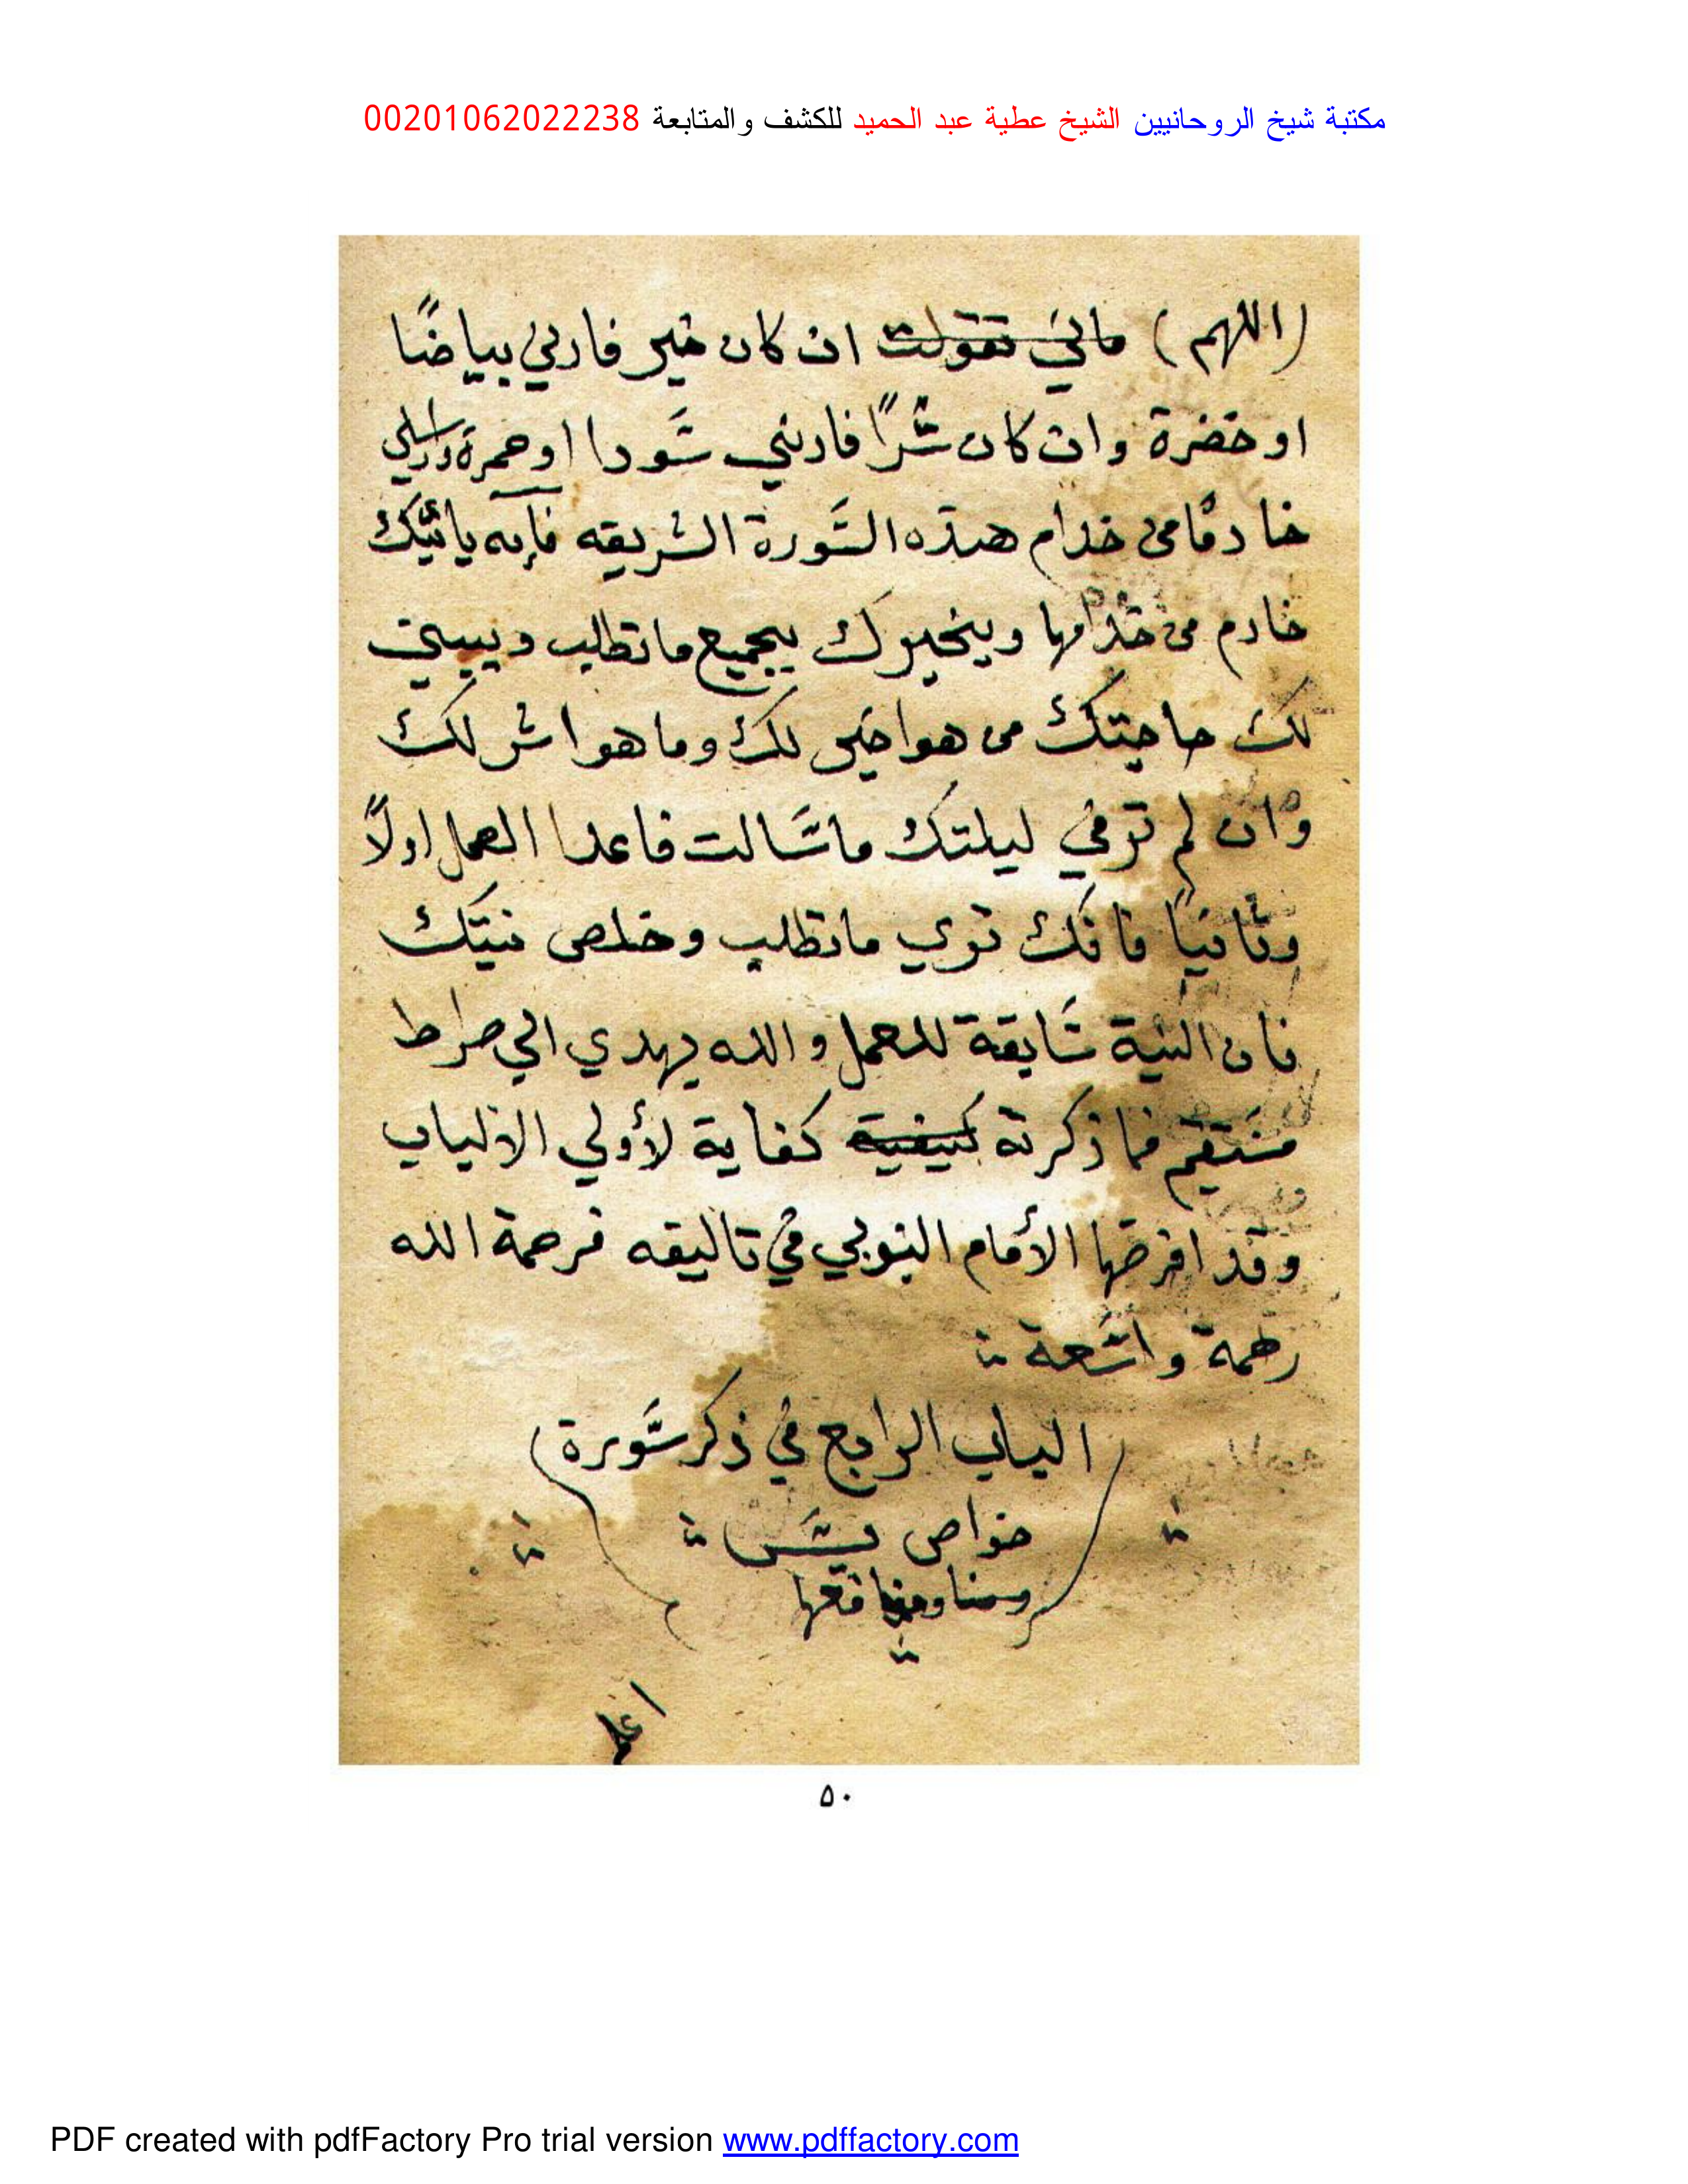 مكتبة شيخ الروحانيين الشيخ عطية عبد الحميد للكشف والمتابعة 00201062022238
(اللهم) ماني تقولت ان كان خير فارني بياضًا
او خضرة وان كان شرًا فارني سَودا اوحمرة وارسلي
خادمًا من خدام هذه السَّورة الشريفه فإنه ياتيك
خادم من خدامها ويخبرك بجميع ماتطلب ويبين
لك حاجتك من هواخير لك وما هو اشر لك
وان لم ترفي ليلتك ماسَالت فاعد العمل اولاً
وثانيًا فانك تري ماتطلب وخلص نيتك
فان النية سَابقة للعمل والله يهدي الي صراط
مستقيم فما ذكرته كيفية كفاية لأولي الالباب
وقد الأمام البوني في تاليفه فرحمة الله
رحمة واسَعة
الباب الرابع في ذكر سَورة
خواص يسَ
اعلم
٥٠
PDF created with pdfFactory Pro trial version www.pdffactory.com